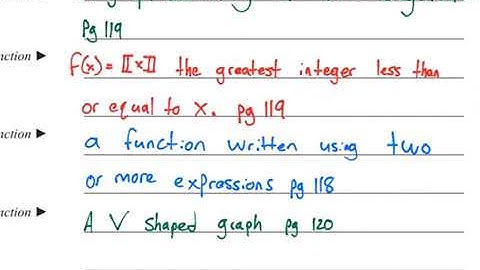 Pg 119
nction ► f(x) = [[x]] the greatest integer less than
or equal to x. pg 119
nction ► a function written using two
or more expressions pg 118
nction ► A V shaped graph pg 120